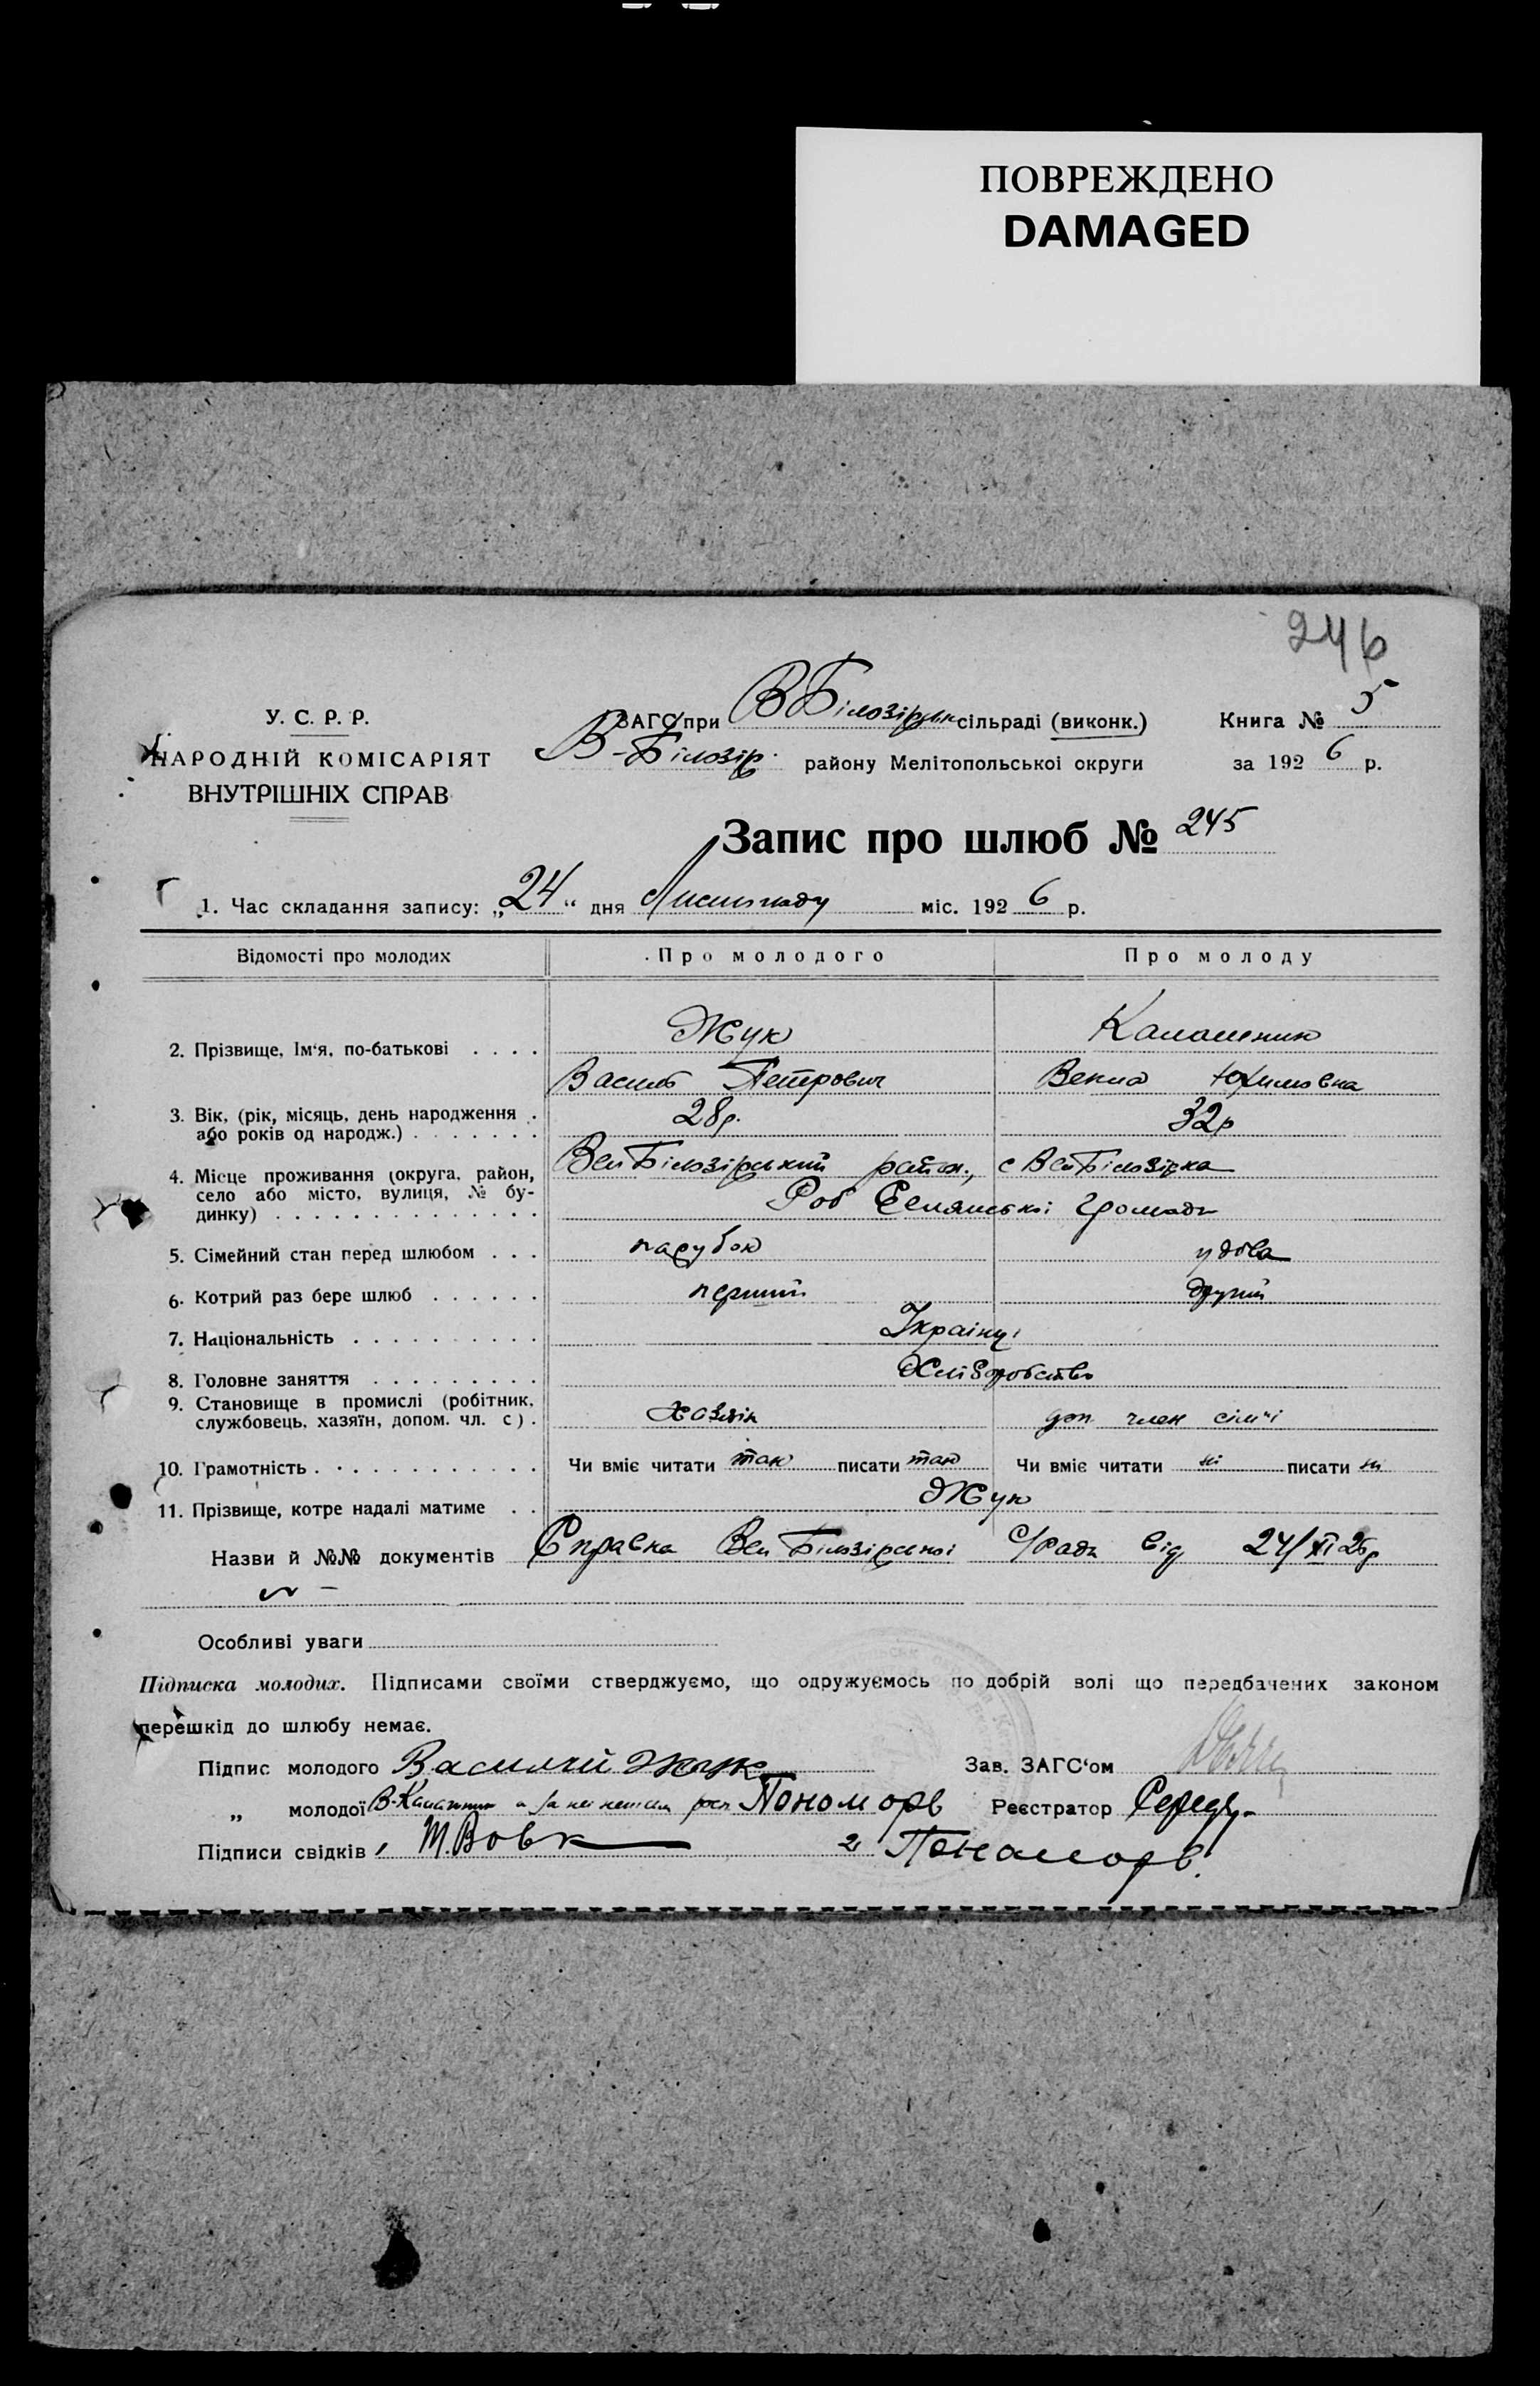 ПОВРЕЖДЕНО
DAMAGED
246
У. С. Р. Р.
НАРОДНІЙ КОМІСАРІЯТ
ВНУТРІШНІХ СПРАВ
ЗАГС при ВБілозірськ сільраді (виконк.) Книга № 5
В-Білозір. району Мелітопольської округи за 1926 р.
Запис про шлюб № 245
1. Час складання запису: „24“ дня Листопаду міс. 1926 р.
Відомості про молодих Про молодого Про молоду
2. Прізвище, Ім‘я, по-батькові . . . . Жук Калашник
Василь Петрович Векла Юхимовна
3. Вік, (рік, місяць, день народження . 28р. 32р
або років од народж.) . . . . . . .
4. Місце проживання (округа, район, ВелБілозірський район., с ВелБілозірка
село або місто, вулиця, № бу-
динку) . . . . . . . . . . . . . . Роб Селянської громади
5. Сімейний стан перед шлюбом . . . парубок удова
6. Котрий раз бере шлюб . . . . . . перший другий
7. Національність . . . . . . . . . . Українці
8. Головне заняття . . . . . . . . . Хліборобство
9. Становище в промислі (робітник, хазяїн доп. член сім'ї
службовець, хазяїн, допом. чл. с) .
10. Грамотність . . . . . . . . . . . . Чи вміє читати так писати так Чи вміє читати ні писати ні
11. Прізвище, котре надалі матиме . . Жук
Назви й №№ документів Справка Вел Білозірської С/Ради від 24/XI 26р
№ –
Особливі уваги
Підписка молодих. Підписами своїми стверджуємо, що одружуємось по добрій волі що передбачених законом
перешкід до шлюбу немає.
Підпис молодого Василий Жук Зав. ЗАГС‘ом
„ молодої В-Калашник а за неї Пономорв Реєстратор Середу-
Підписи свідків 1 М.Вовк 2 Понаморв.